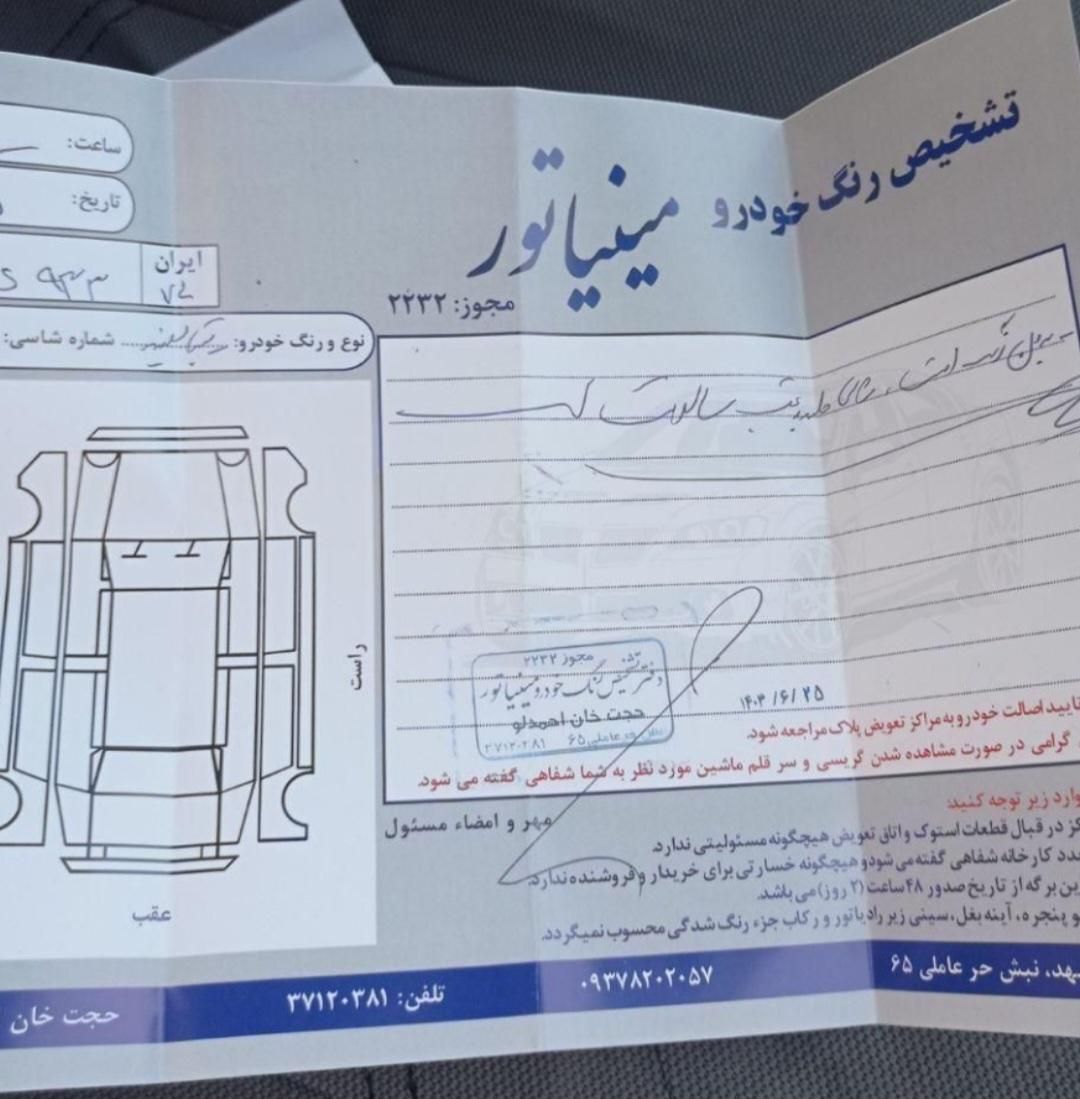 تشخیص رنگ خودرو مینیاتور
مجوز: ۲۲۳۲
ساعت:
تاریخ:
ایران
۷۴
۹۳۳
نوع و رنگ خودرو:
شماره شاسی:
بدون رنگ است
عقب سالم است
راست
عقب
مجوز ۲۲۳۲
دفتر تشخیص رنگ خودرو مینیاتور
حجت خان احمدلو
حر عاملی ۶۵ ۳۷۱۲۰۳۸۱
۱۴۰۳/۶/۲۵
تایید اصالت خودرو به مراکز تعویض پلاک مراجعه شود.
گرامی در صورت مشاهده شدن گریسی و سر قلم ماشین مورد نظر به شما شفاهی گفته می شود.
مهر و امضاء مسئول
موارد زیر توجه کنید:
در قبال قطعات استوک و اتاق تعویض هیچگونه مسئولیتی ندارد.
کارخانه شفاهی گفته می شود و هیچگونه خسارتی برای خریدار و فروشنده ندارد.
این برگه از تاریخ صدور ۴۸ ساعت (۲ روز) می باشد.
پنجره، آینه بغل، سینی زیر رادیاتور و رکاب جزء رنگ شدگی محسوب نمیگردد.
نبش حر عاملی ۶۵
۰۹۳۷۸۲۰۲۰۵۷
تلفن: ۳۷۱۲۰۳۸۱
حجت خان